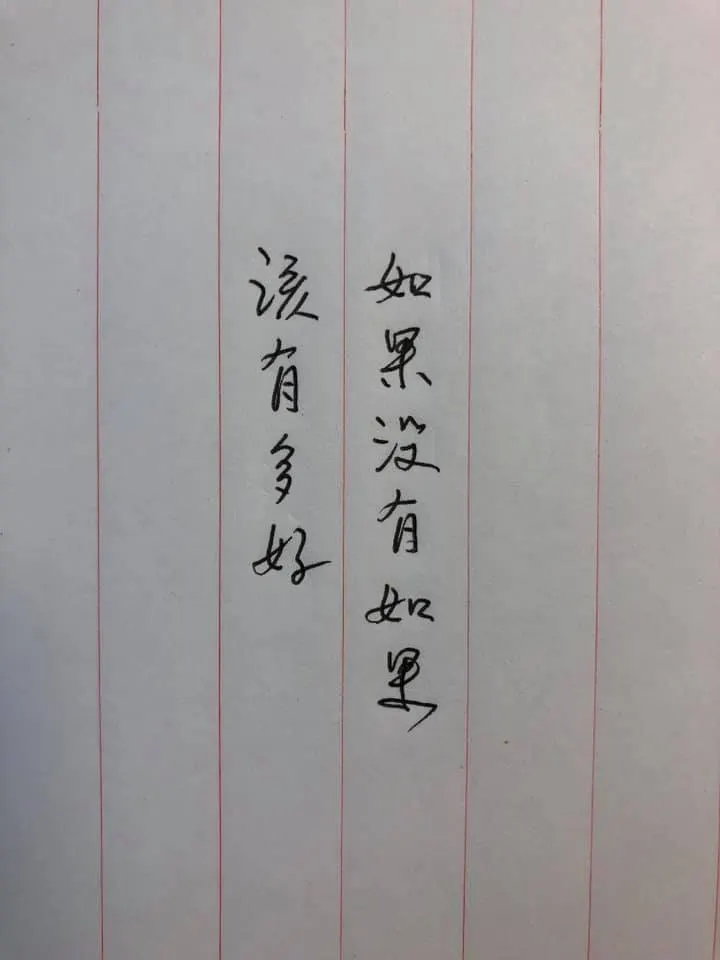 如果没有如果
该有多好